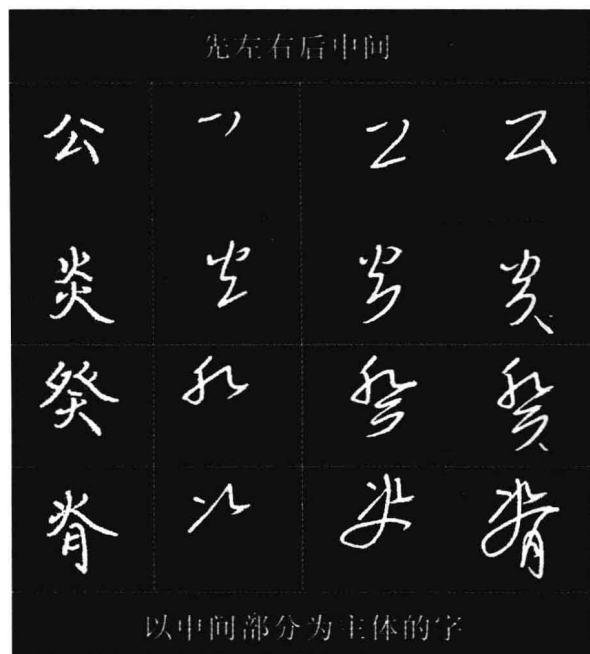 先左右后中间
公
炎
癸
脊
以中间部分为主体的字